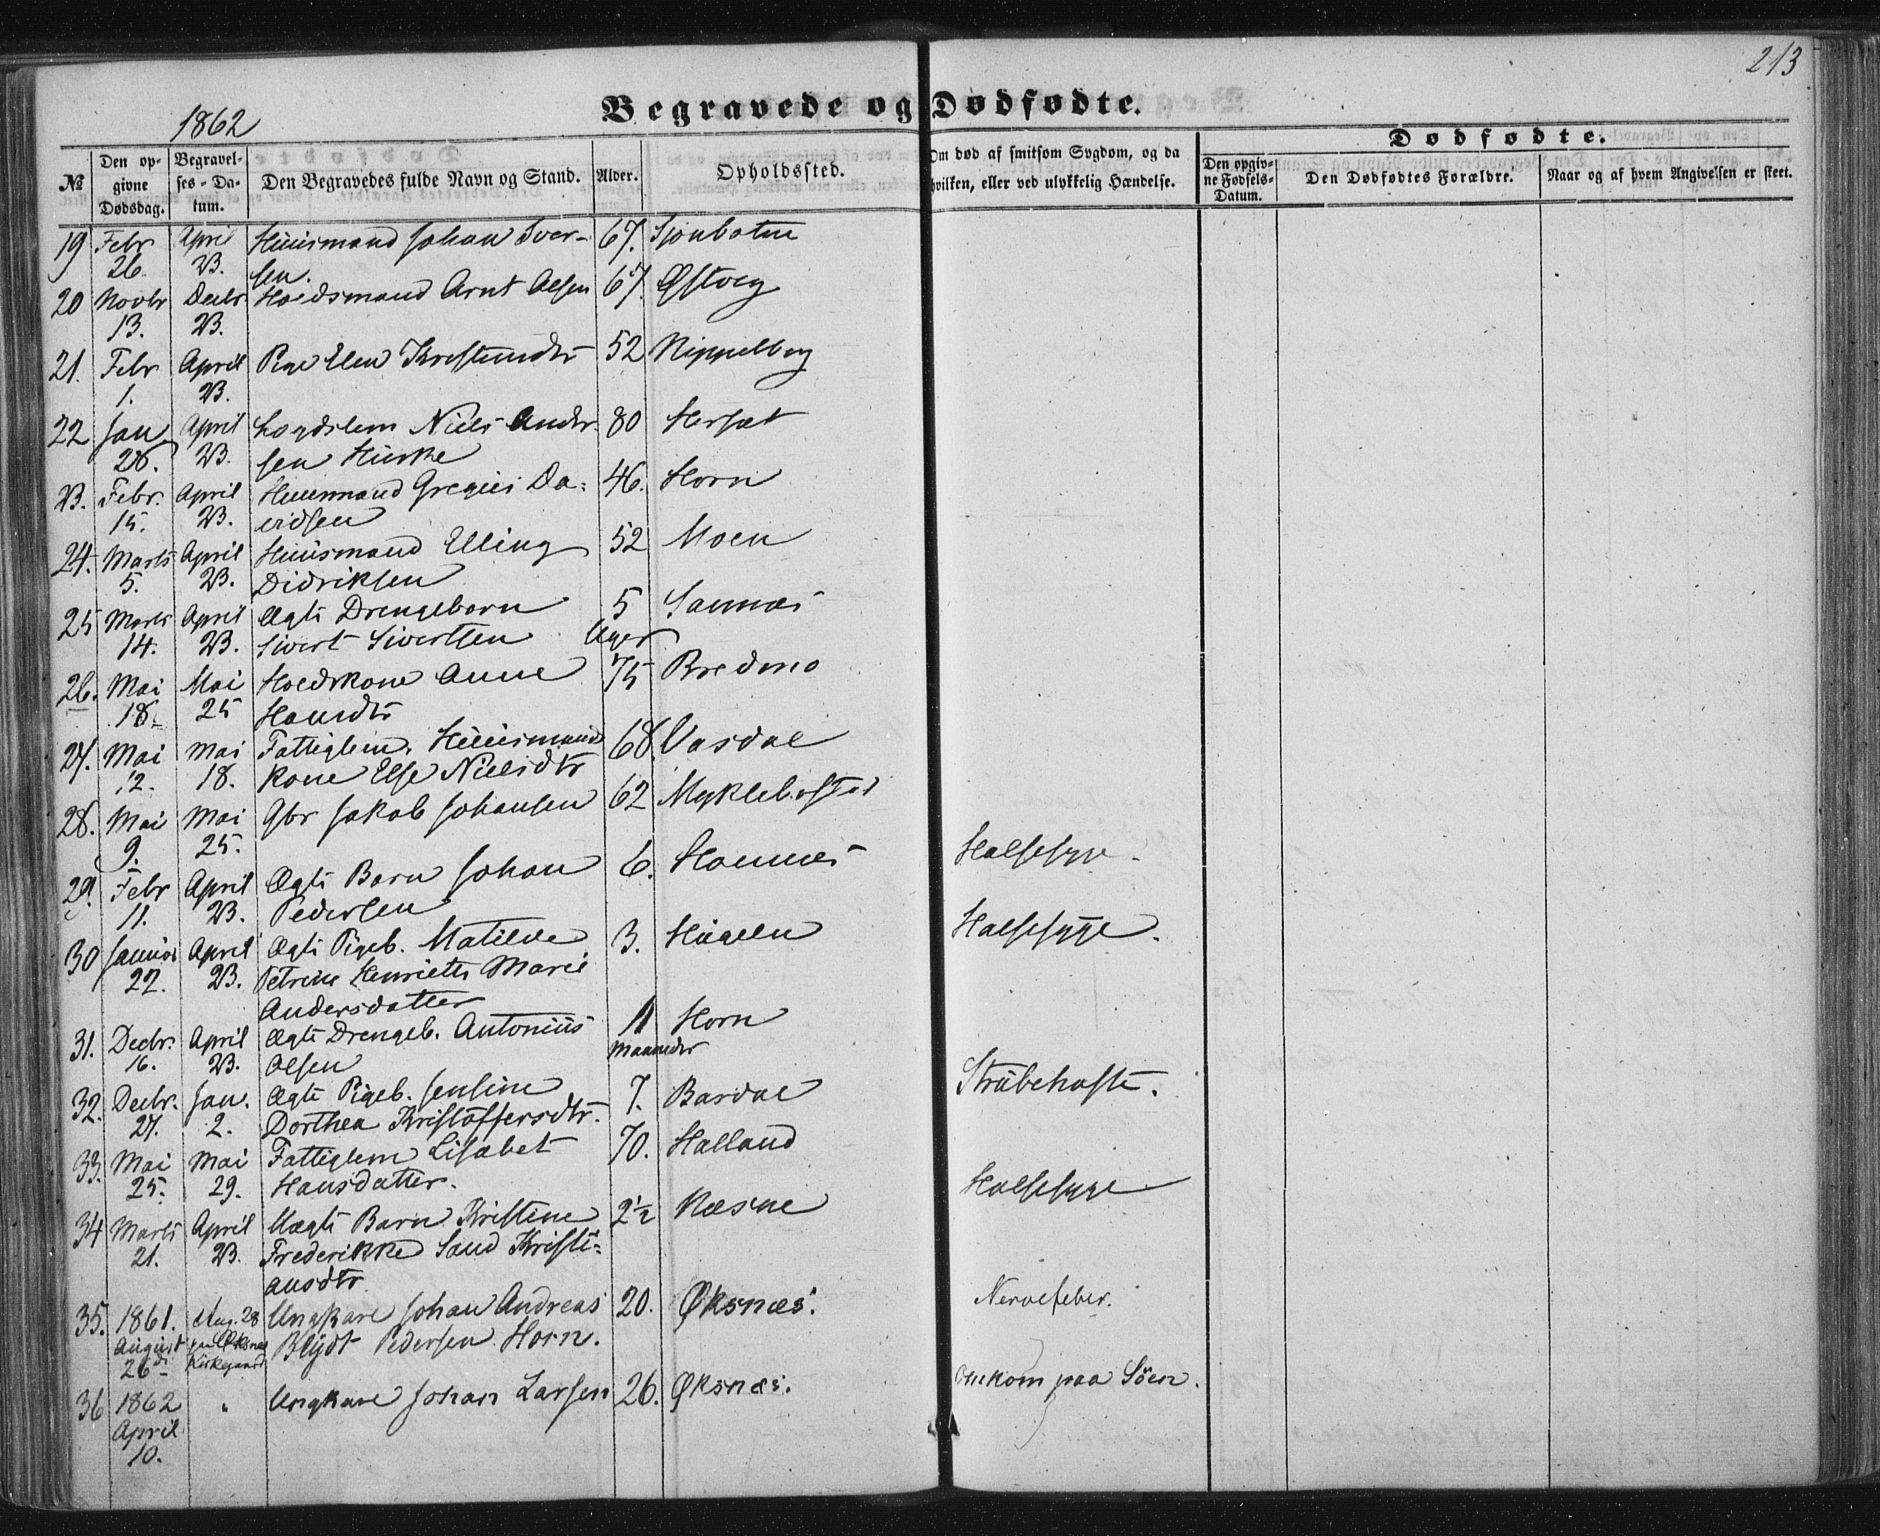 213
1862
Begravede og Dødfødte.
Dødfødte.
№
Den op-
givne
Dødsdag.
Begravel-
ses-Da-
tum.
Den Begravedes fulde Navn og Stand.
Alder.
Opholdssted.
Om død af smitsom Sygdom, og da
hvilken, eller ved ulykkelig Hændelse.
Den opgiv-
ne Fødsels-
Datum.
Den Dødfødtes Forældre.
Naar og af hvem Angivelsen er skeet.
19 Febr April Huusmand Johan Iver- 67. Sjonbotn
26. 23. sen.
20 Novbr Decbr Hoedsmand Arnt Olsen 67. Østvig
13. 23.
21. Febr April Pige Elen Kristensdtr 52 Nippelberg
1. 23.
22 Jan April Lægdslem Niels Ander- 80 Herset
28. 23. sen
23. Febr. April Huusmand Gregus Da- 46. Horn
15. 23. vidsen
24. Marts April Huusmand Elling 52 Moen
5. 23. Didriksen
25 Marts April Ægte Drengebarn 5 Sannæs
14. 23. Sivert Sivertsen Uger
26. Mai Mai Hoedskone Anne 75 Bredmo
18. 25 Hansdtr
27. Mai Mai Fattiglem, Huusmand 68. Vasdal
12. 18. kone Else Nielsdtr
28. Mai Mai Gbr Jakob Johansen 62 Myklebostad
9. 25.
29. Febr April Ægte Barn Johan 6. Hannes Halsesyge.
11. 23. Pedersen
30 Januar April Ægte Pigeb. Matilde 3. Haugen Halsesyge.
22. 23. Petrine Henriette Marie
Andersdatter
31. Decbr. April Ægte Drengeb. Antonius 11 Horn
16. 23. Olsen Maaneder
32. Decbr. Jan. Ægte Pigeb. Jensine 7. Bardal Strubehoste.
27. 2. Dorthea Kristoffersdtr.
33. Mai Mai Fattiglem Lisabet 70. Halland
25. 29. Hansdatter.
34 Marts April Uægte Barn Kristine 2½ Næsne Halsesyge
21. 23. Frederikke Sand Kristi-
ansdtr
35. 1861. Aug. 28 Ungkarl Johan Andreas 20. Øksnæs. Nervefeber.
August paa Øksnes Blydt Pedersen Horn.
26de Kirkegaard
36 1862 " Ungkarl Johan Larsen 26. Øksnæs. Omkom paa Søen.
April
10.